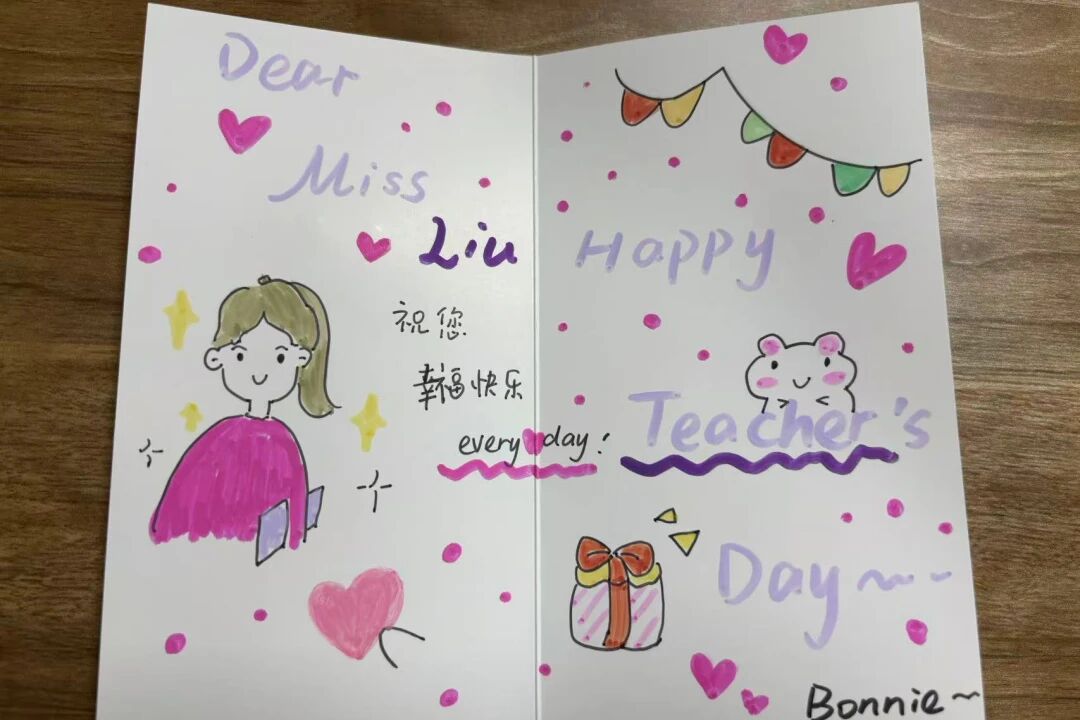 Dear
Miss
Liu
祝您
幸福快乐
every day!
Happy
Teacher's
Day~~-
Bonnie~